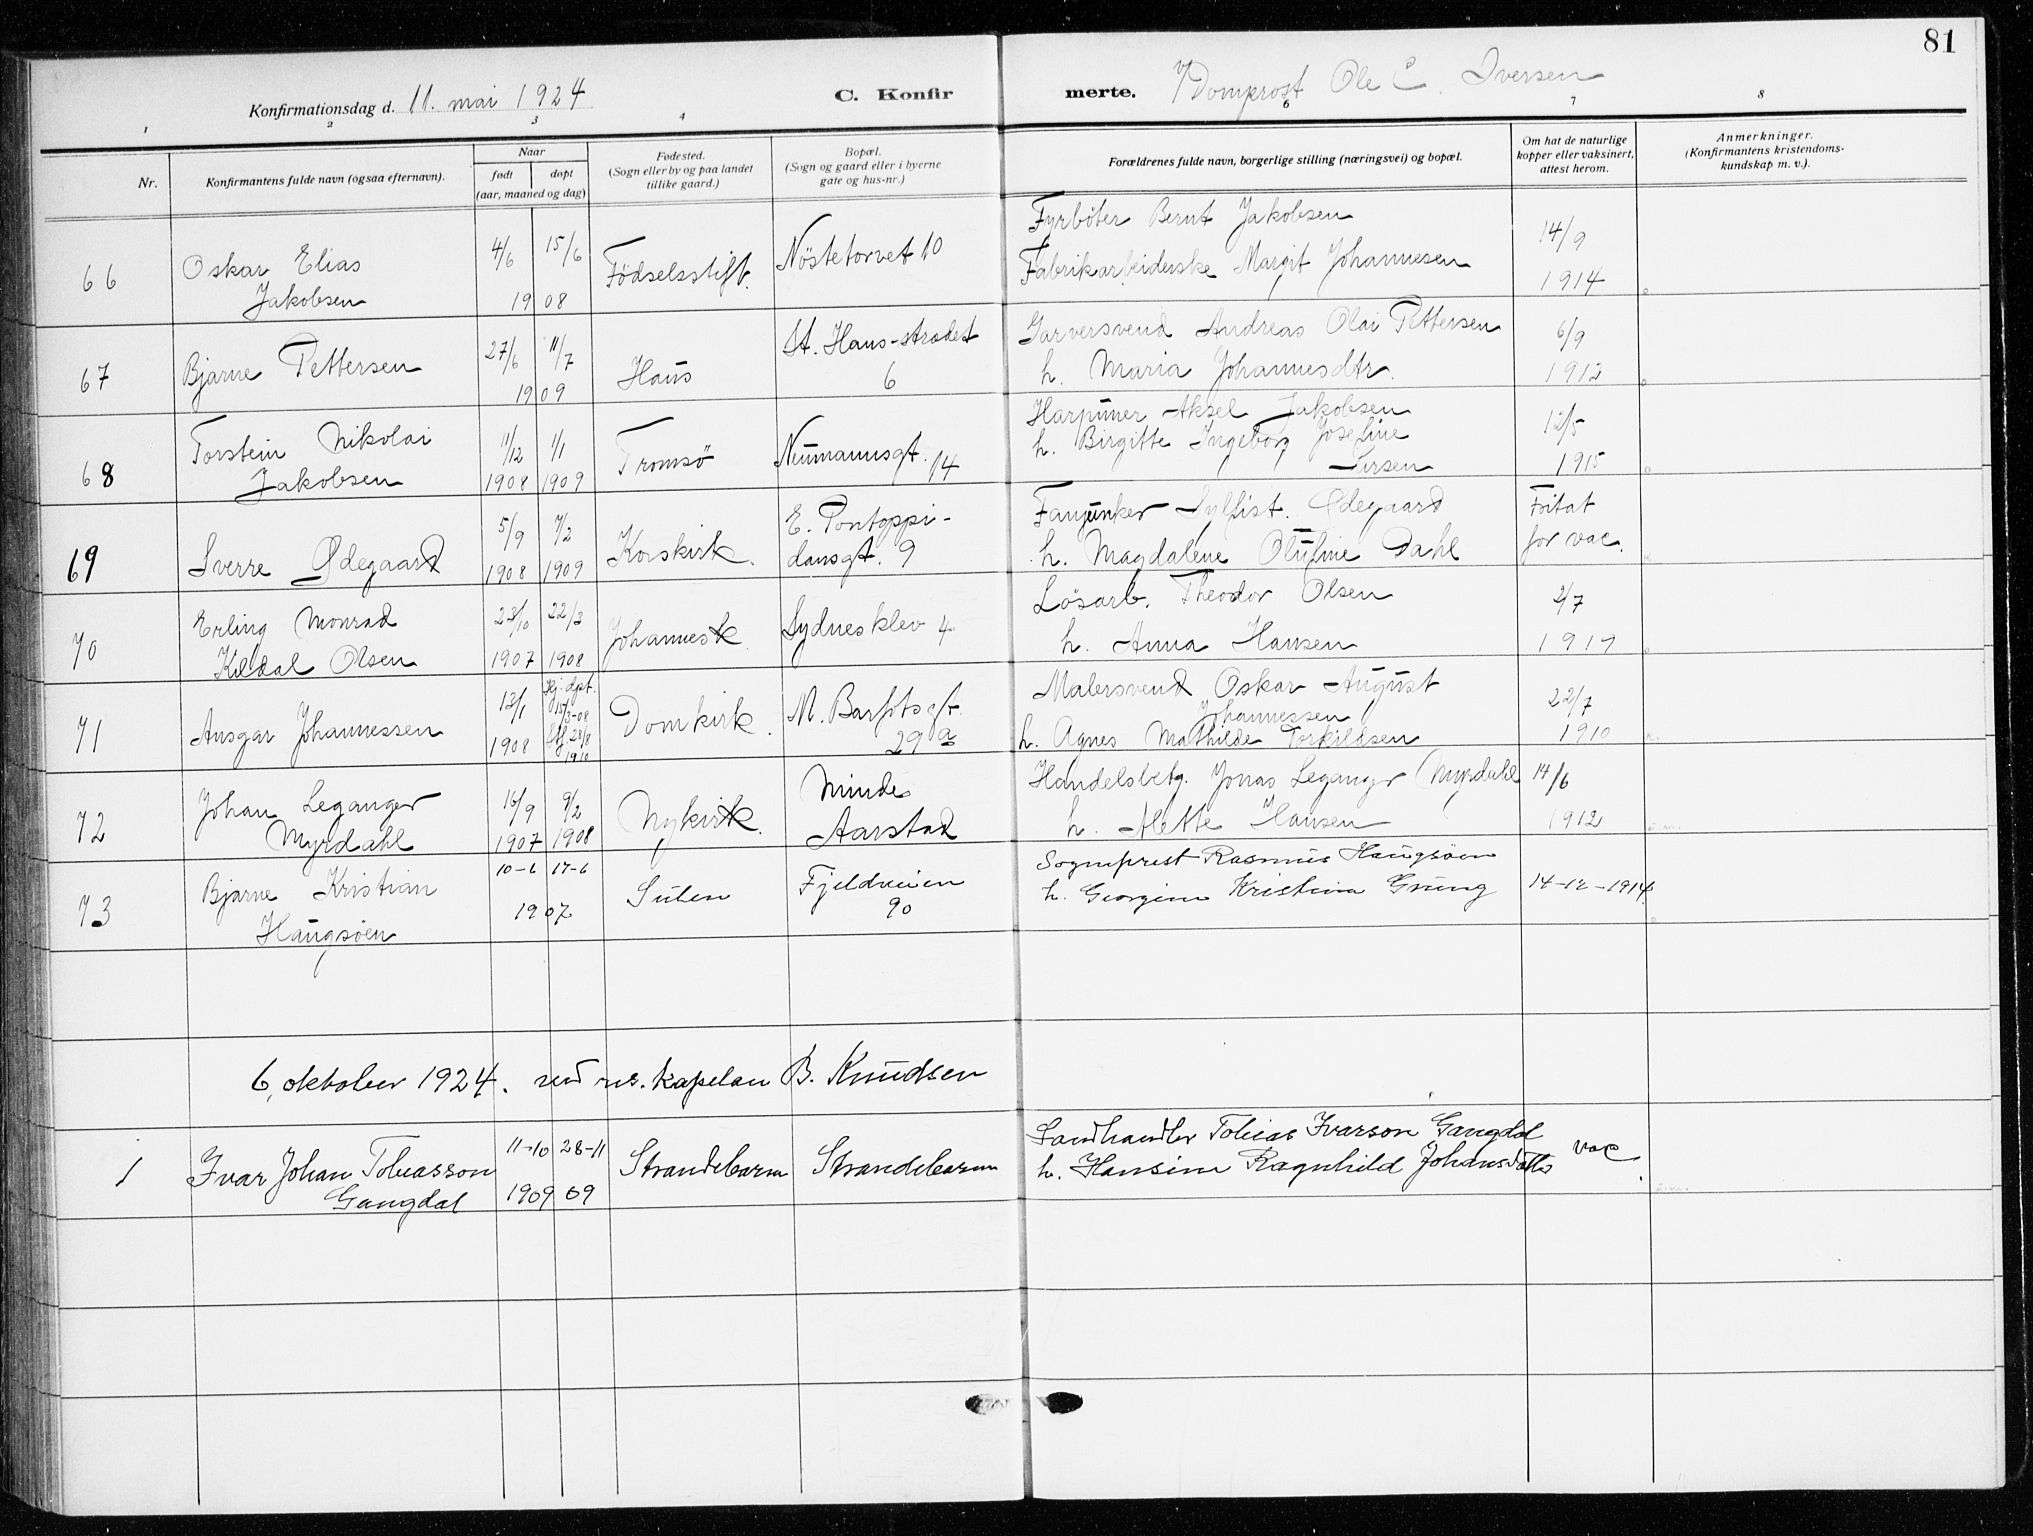 81
Konfirmationsdag d. 11. mai 1924
C. Konfir
merte. Domprost Ole C. Iversen
1 2 3 4 6 7 8
Nr.
Konfirmantens fulde navn (ogsaa efternavn).
Naar
født døpt
(aar, maaned og dag)
Fødested.
(Sogn eller by og paa landet
tillike gaard.)
Bopæl.
(Sogn og gaard eller i byerne
gate og hus-nr.)
Forældrenes fulde navn, borgerlige stilling (næringsvei) og bopæl.
Om hat de naturlige
kopper eller vaksinert,
attest herom.
Anmerkninger.
(Konfirmantens kristendoms-
kundskap m. v.).
66
Oskar Elias
Jakobsen
4/6 15/6
1908
Födselsstift.
Nöstetorvet 10
Fyrböter Bernt Jakobsen
Fabrikarbeiderske Margit Johannesen
14/9
1914
67
Bjarne Pettersen
27/6 11/7
1909
Haus
St. Hans-strædet
6
Garversvend Andreas Olai Pettersen
h. Maria Johannesdtr.
6/9
1912
68
Torstein Nikolai
Jakobsen
11/12 1/1
1908 1909
Tromsö
Neumannsgt. 14
Harpuner Aksel Jakobsen
h. Birgitte Ingeborg Josefine
12/5
1915
69
Sverre Ødegaard
5/9 7/2
1908 1909
Korskirk.
E. Pontoppi-
dansgt. 9
Fanjunker Ødegaard
h. Magdalene Olufine Dahl
Fritat
for vac.
70
Erling Monrad
Kildal Olsen
23/10 22/3
1907 1908
Johannesk.
Sydnesklev 4
Lösarb. Theodor Olsen
h. Anna Hansen
2/7
1917
71
Ansgar Johannessen
13/1
1908
Hj. dpt.
15/3-08
Stf. 28/8
1910
Domkirk.
M. Barfotsgt.
29 a
Malersvend Oskar August
Johannessen
h. Agnes Mathilde Torkildsen
22/7
1910
72
Johan Leganger
Myrdahl
16/9 9/2
1907 1908
Nykirk.
Minde
Aarstad
Handelsbetj. Jonas Leganger Myrdahl
h. Mette Hansen
14/6
1912
73
Bjarne Kristian
Haugsøen
10-6 17-6
1907
Sulen
Fjeldveien
90
Sogneprest Rasmus Haugsøen
h. Georgine Kristina Grung
14-12-1914
6. oktober 1924. ved res. kapelan B. Knudsen
1
Ivar Johan Tobiasson
Gangdal
11-10 28-11
1909 09
Strandebarm
Strandebarm
Landhandler Tobias Ivarson Gangdal
h. Hansine Ragnhild Johansdatter
vac.